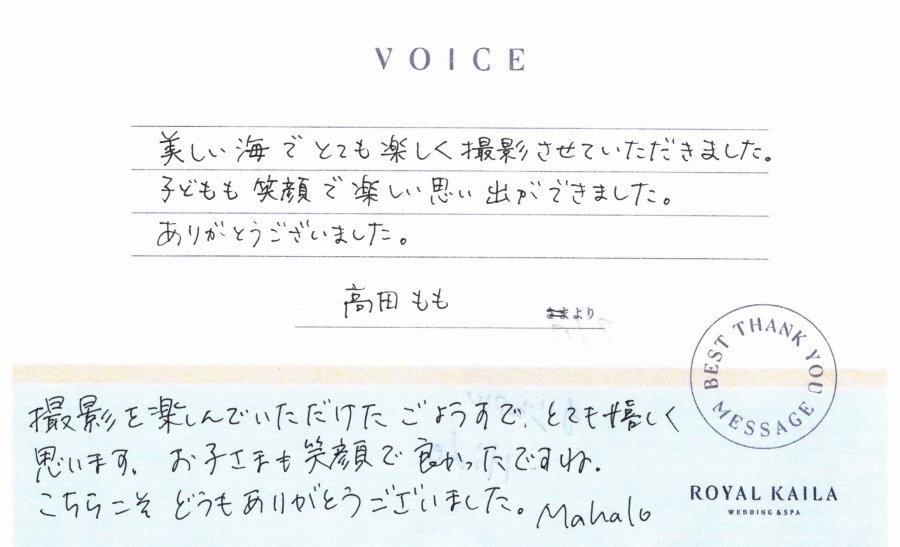 VOICE
美しい海でとても楽しく撮影させていただきました。
子どもも笑顔で楽しい思い出ができました。
ありがとうございました。
高田もも
さまより
BEST THANK YOU MESSAGE
撮影を楽しんでいただけたごようすで、とても嬉しく
思います。お子さまも笑顔で良かったですね。
こちらこそどうもありがとうございました。Mahalo
ROYAL KAILA
WEDDING & SPA